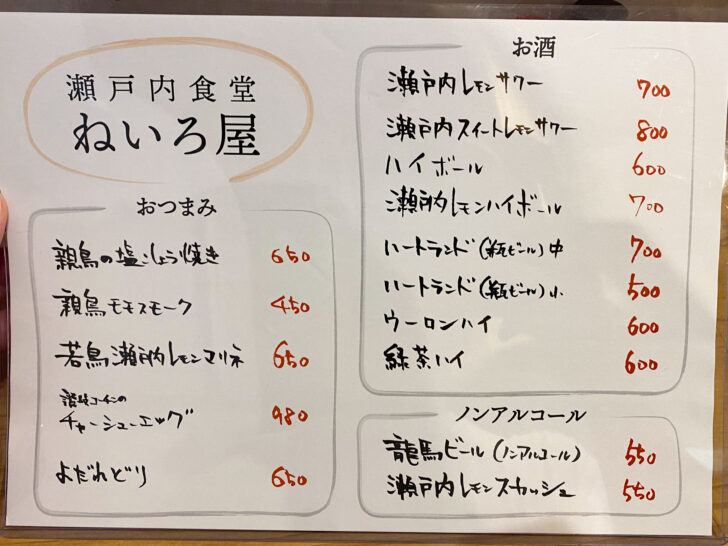 瀬戸内食堂
ねいろ屋
おつまみ
親鳥の塩こしょう焼き 650
親鳥モモスモーク 450
若鳥瀬戸内レモンマリネ 650
讃岐コーチンの
チャーシューエッグ 980
よだれどり 650
お酒
瀬戸内レモンサワー 700
瀬戸内スイートレモンサワー 800
ハイボール 600
瀬戸内レモンハイボール 700
ハートランド(瓶ビール)中 700
ハートランド(瓶ビール)小 500
ウーロンハイ 600
緑茶ハイ 600
ノンアルコール
龍馬ビール(ノンアルコール) 550
瀬戸内レモンスカッシュ 550